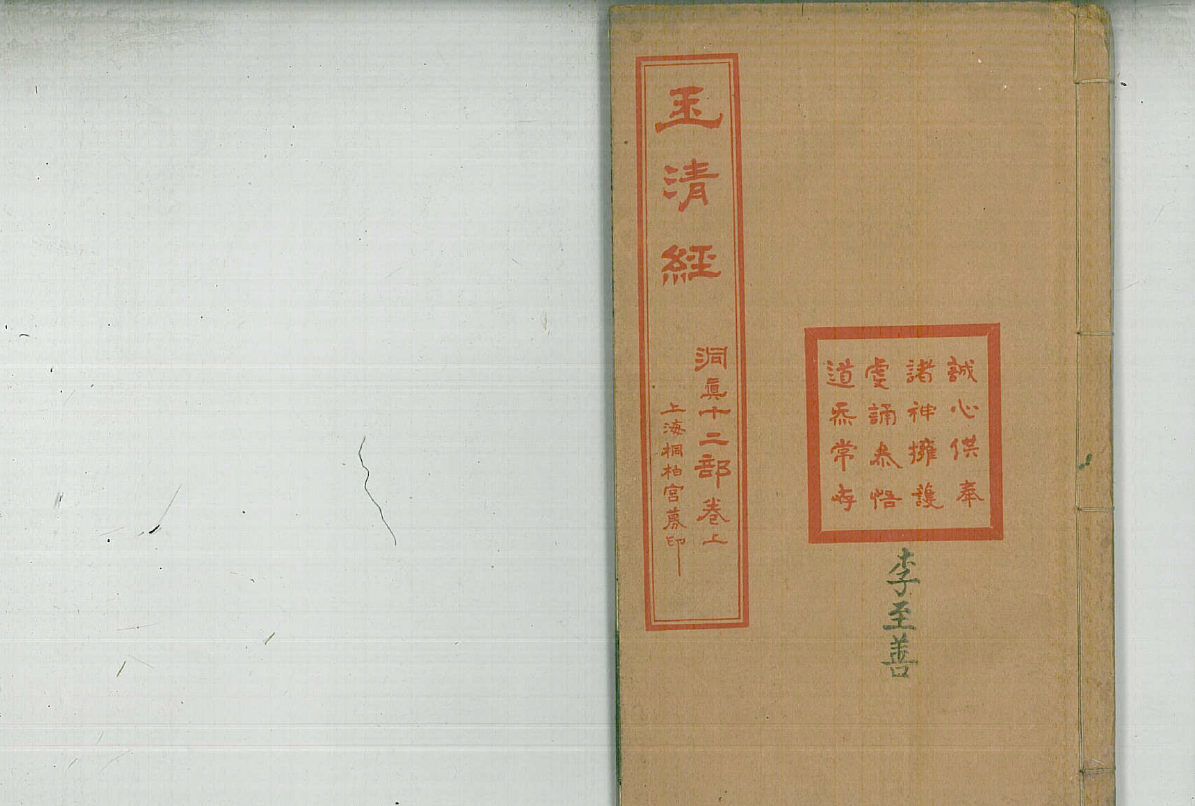 誠心供奉
諸神擁護
虔誦恭悟
道炁常存
李至善
玉清經
洞眞十二部卷上
上海桐柏宮募印